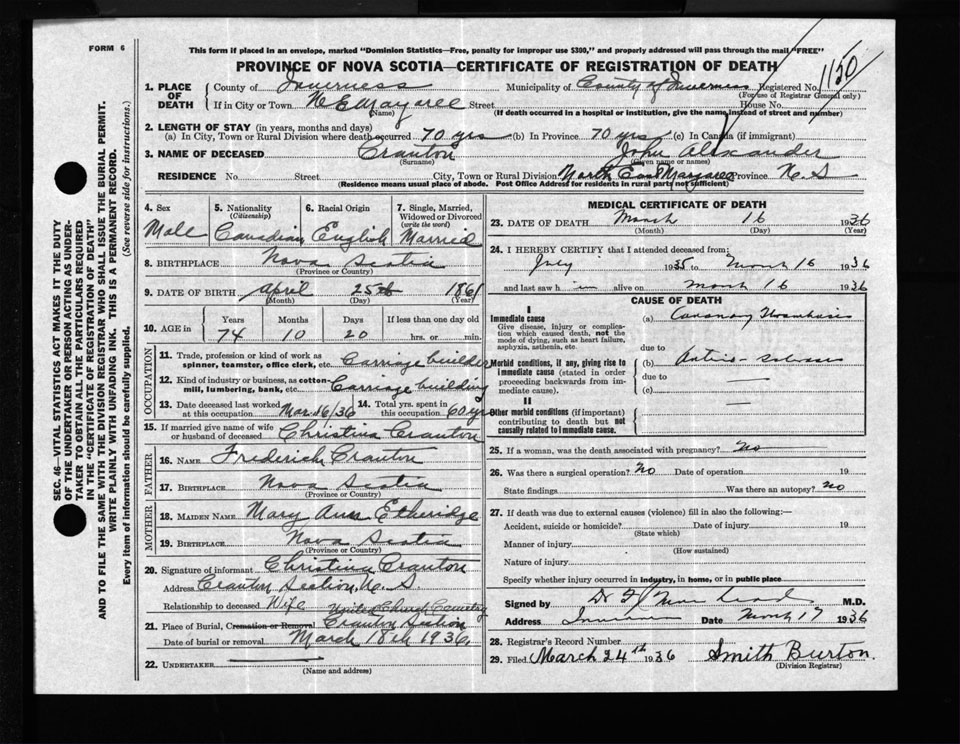 FORM 6
This form if placed in an envelope, marked "Dominion Statistics—Free, penalty for improper use $300," and properly addressed will pass through the mail "FREE"
PROVINCE OF NOVA SCOTIA—CERTIFICATE OF REGISTRATION OF DEATH
1150
1. PLACE OF DEATH
County of Inverness Municipality of County of Inverness Registered No.
(For use of Registrar General only)
If in City or Town N E Margaree Street House No.
(Name) (If death occurred in a hospital or institution, give the name instead of street and number)
2. LENGTH OF STAY (in years, months and days)
(a) In City, Town or Rural Division where death occurred 70 yrs (b) In Province 70 yrs (c) In Canada (if immigrant)
3. NAME OF DECEASED Cranton John Alexander
(Surname) (Given name or names)
RESIDENCE No. Street City, Town or Rural Division North East Margaree Province N. S
(Residence means usual place of abode. Post Office Address for residents in rural parts not sufficient)
4. Sex Male
5. Nationality (Citizenship) Canadian
6. Racial Origin English
7. Single, Married, Widowed or Divorced (write the word) Married
8. BIRTHPLACE Nova Scotia
(Province or Country)
9. DATE OF BIRTH April 25th 1861
(Month) (Day) (Year)
10. AGE in Years Months Days If less than one day old
74 10 20 hrs. or min.
OCCUPATION
11. Trade, profession or kind of work as spinner, teamster, office clerk, etc. Carriage builder
12. Kind of industry or business, as cotton-mill, lumbering, bank, etc. Carriage building
13. Date deceased last worked at this occupation Mar 16/36
14. Total yrs. spent in this occupation 60 yrs
15. If married give name of wife or husband of deceased Christina Cranton
FATHER
16. NAME Frederick Cranton
17. BIRTHPLACE Nova Scotia
(Province or Country)
MOTHER
18. MAIDEN NAME Mary Ann Etheridge
19. BIRTHPLACE Nova Scotia
(Province or Country)
20. Signature of informant Christina Cranton
Address Cranton Section, N. S
Relationship to deceased Wife
United Church Cemetery
21. Place of Burial, Cremation or Removal Cranton Section
Date of burial or removal March 18th 1936
22. UNDERTAKER
(Name and address)
MEDICAL CERTIFICATE OF DEATH
23. DATE OF DEATH March 16 1936
(Month) (Day) (Year)
24. I HEREBY CERTIFY that I attended deceased from:
July 1935 to March 16 1936
and last saw h im alive on March 16 1936
CAUSE OF DEATH
I
Immediate cause
Give disease, injury or complication which caused death, not the mode of dying, such as heart failure, asphyxia, asthenia, etc.
(a) Coronary Thrombosis
due to
Morbid conditions, if any, giving rise to immediate cause (stated in order proceeding backwards from immediate cause).
(b) Arterio-sclerosis
due to
(c)
II
Other morbid conditions (if important) contributing to death but not causally related to immediate cause.
25. If a woman, was the death associated with pregnancy? No
26. Was there a surgical operation? No Date of operation 19
State findings Was there an autopsy? No
27. If death was due to external causes (violence) fill in also the following:—
Accident, suicide or homicide? Date of injury 19
(State which)
Manner of injury
(How sustained)
Nature of injury
Specify whether injury occurred in industry, in home, or in public place
Signed by M.D.
Address Inverness Date March 17 1936
28. Registrar's Record Number
29. Filed March 24th 1936 Smith Burton.
(Division Registrar)
SEC. 46—VITAL STATISTICS ACT MAKES IT THE DUTY
OF THE UNDERTAKER OR PERSON ACTING AS UNDER-
TAKER TO OBTAIN ALL THE PARTICULARS REQUIRED
IN THE "CERTIFICATE OF REGISTRATION OF DEATH"
AND TO FILE THE SAME WITH THE DIVISION REGISTRAR WHO SHALL ISSUE THE BURIAL PERMIT.
WRITE PLAINLY WITH UNFADING INK. THIS IS A PERMANENT RECORD.
Every item of information should be carefully supplied. (See reverse side for instructions.)